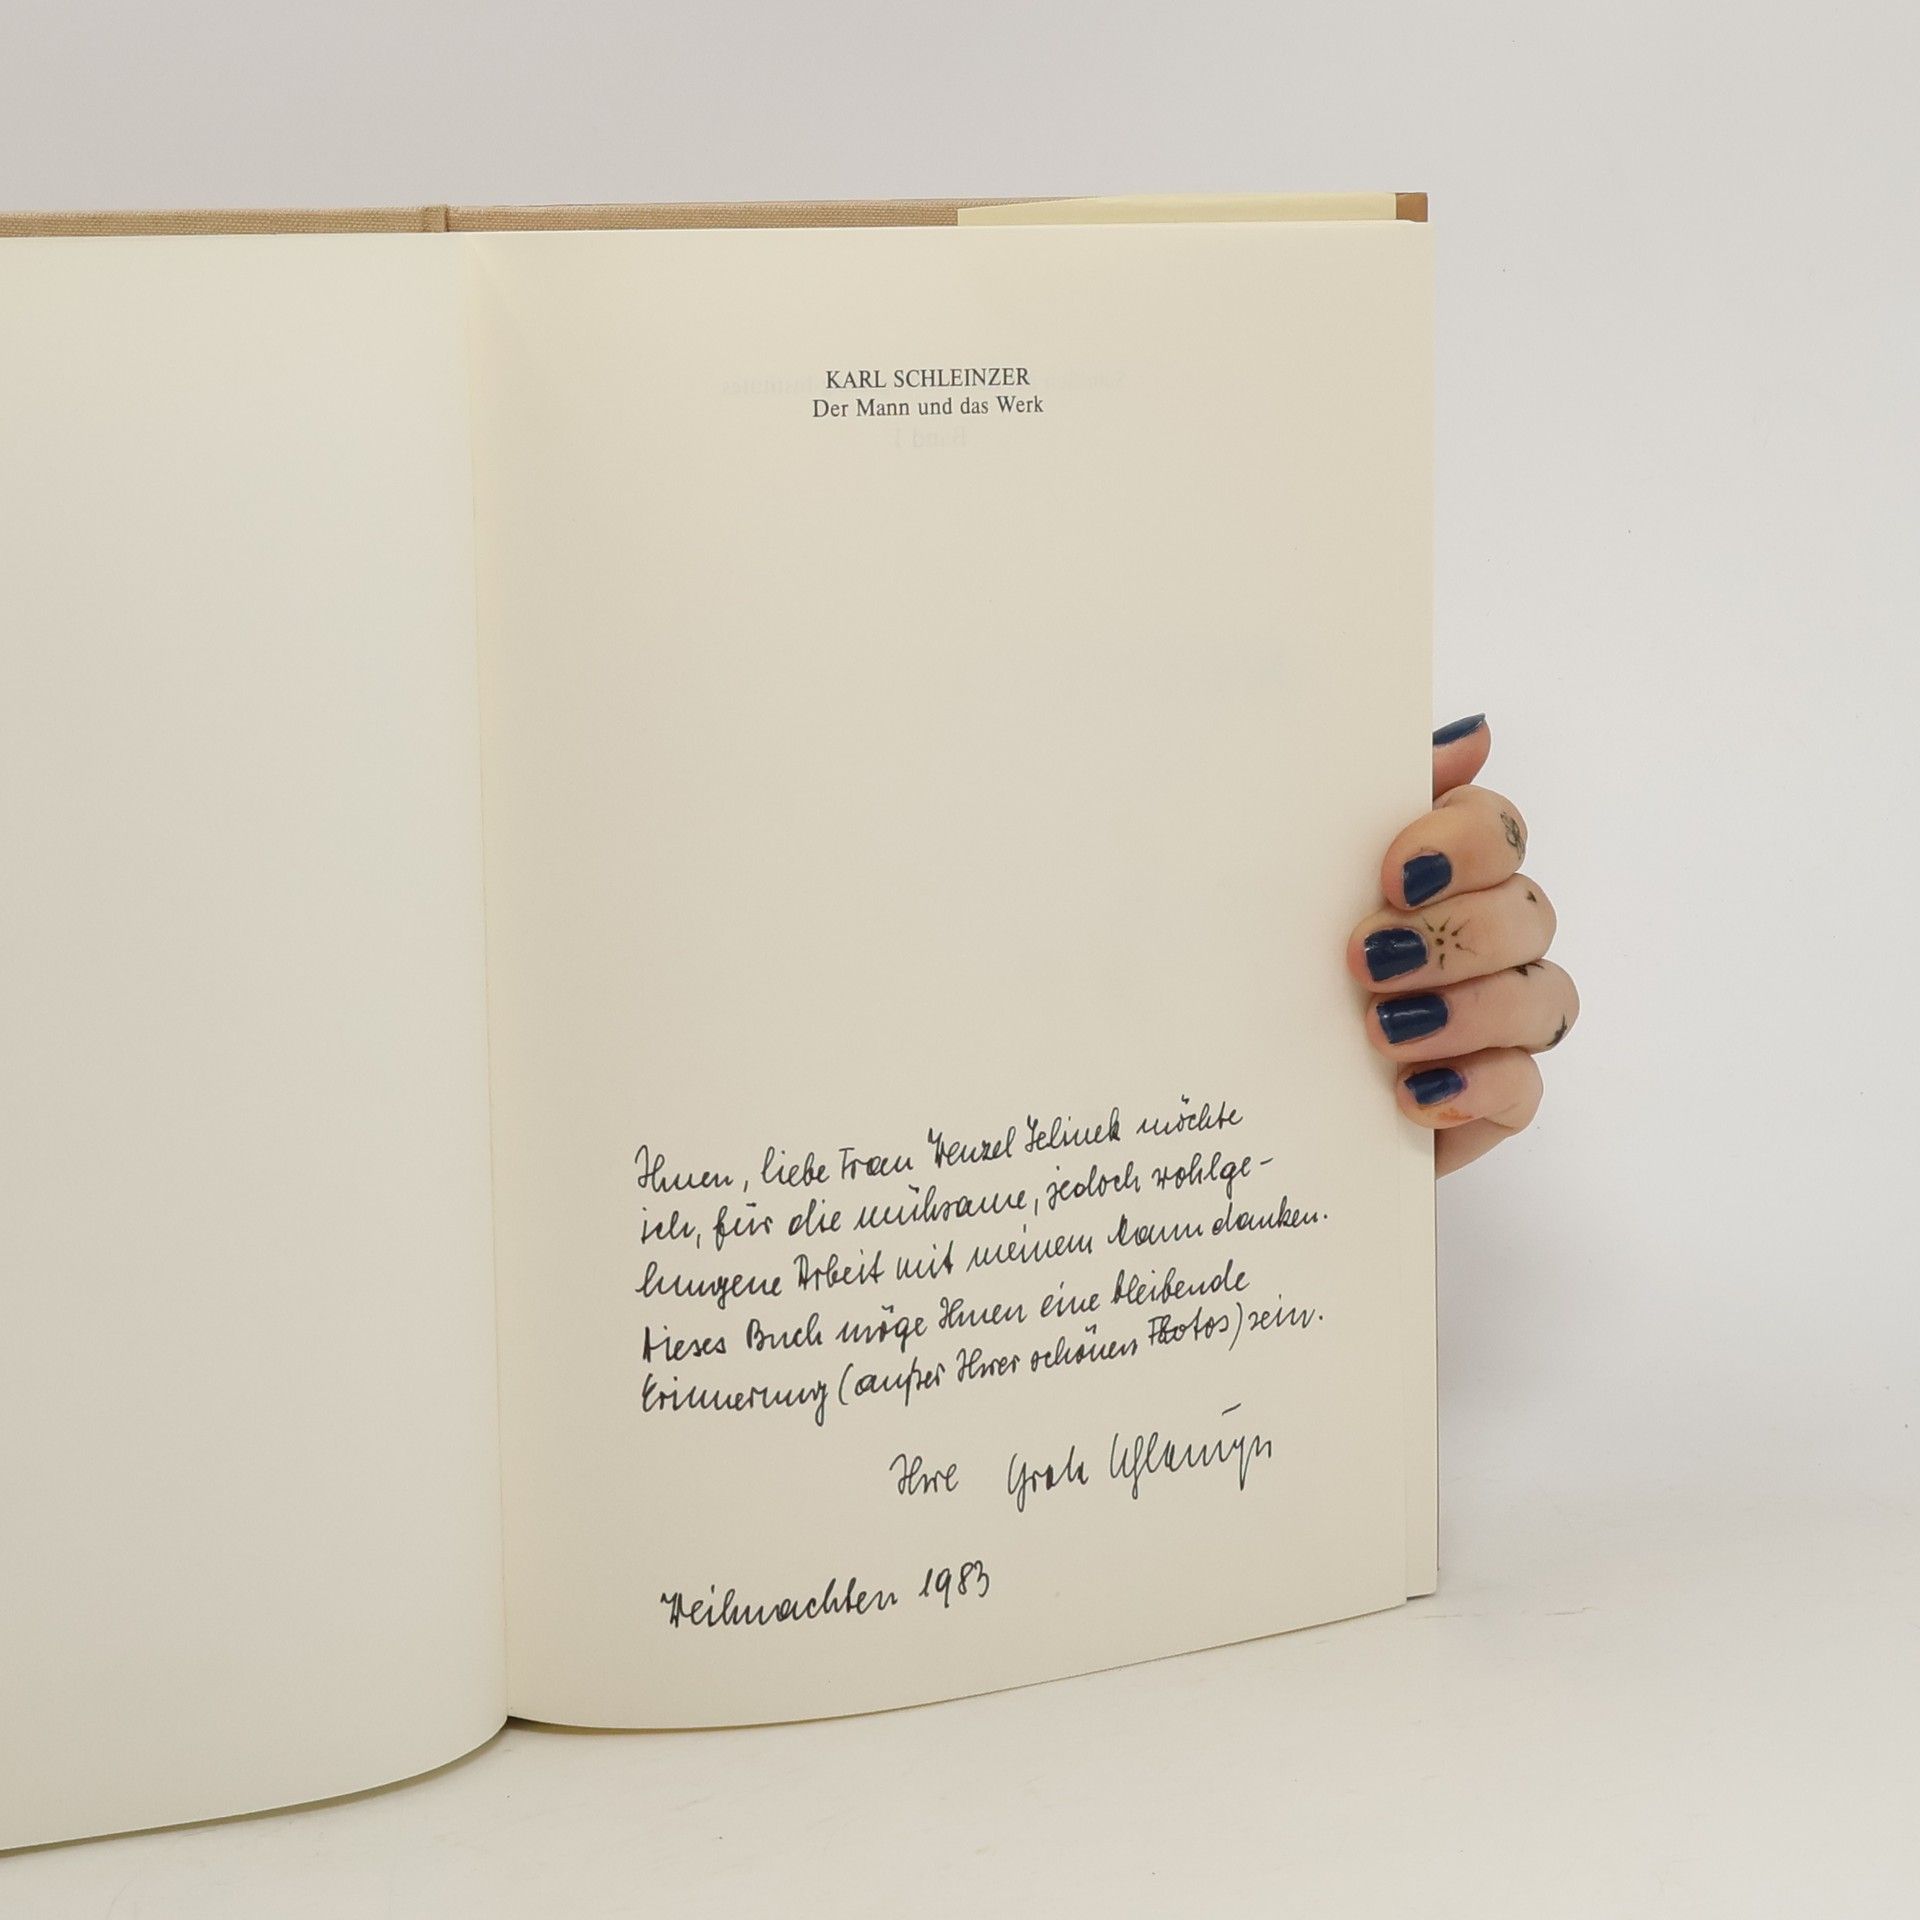 KARL SCHLEINZER
Der Mann und das Werk
Band 1
Ihnen, liebe Frau Wenzel Jelinek möchte
ich, für die mühsame, jedoch wohlge-
lungene Arbeit mit meinem Mann danken.
Dieses Buch möge Ihnen eine bleibende
Erinnerung (außer Ihrer schönen Photos) sein.
Ihre
Weihnachten 1983